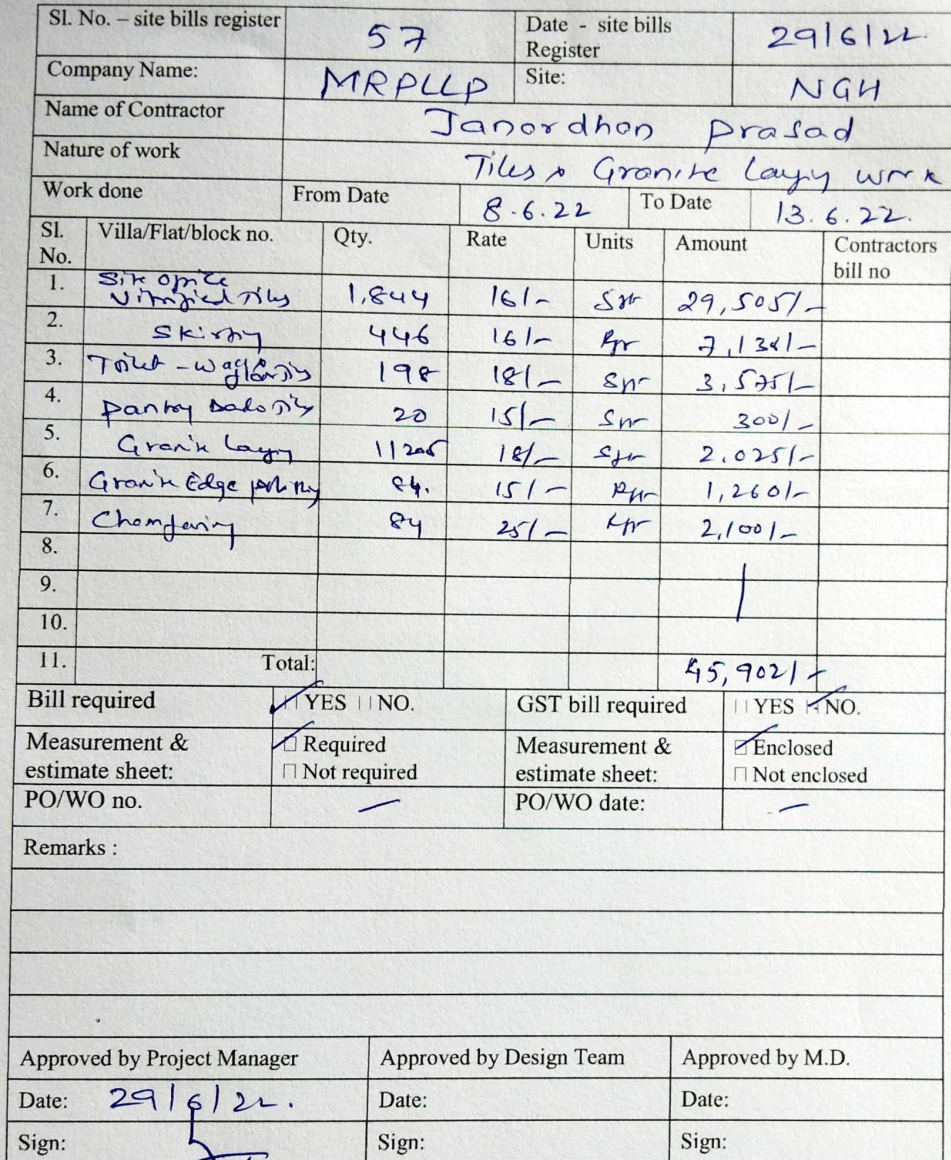 Sl. No. – site bills register 57 Date - site bills Register 29/6/22
Company Name: MRPLLP Site: NGH
Name of Contractor Janordhon Prasad
Nature of work Tiles & Granite laying work
Work done From Date 8.6.22 To Date 13.6.22.
Sl. No. Villa/Flat/block no. Qty. Rate Units Amount Contractors bill no
1. Site office Vitrified Tiles 1,844 16/- Sft 29,505/-
2. Skirting 446 16/- Rft 7,138/-
3. Toilet - Wall 198 18/- Sft 3,575/-
4. Pantry Dado Tiles 20 15/- Sft 300/-
5. Granite laying 18/- Sft 2,025/-
6. Granite Edge polishing 84. 15/- Rft 1,260/-
7. Chamfering 84 25/- Rft 2,100/-
8.
9.
10.
11. Total: 45,902/-
Bill required YES NO. GST bill required YES NO.
Measurement & estimate sheet: Required Not required Measurement & estimate sheet: Enclosed Not enclosed
PO/WO no. — PO/WO date: —
Remarks :
Approved by Project Manager Approved by Design Team Approved by M.D.
Date: 29/6/22. Date: Date:
Sign: Sign: Sign: